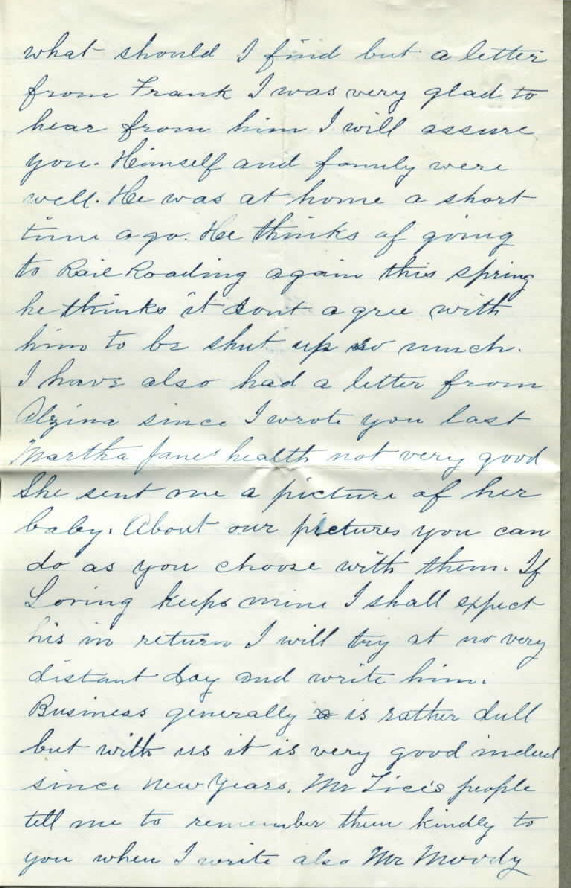 what should I find but a letter
from Frank I was very glad to
hear from him I will assure
you. Himself and family were
well. He was at home a short
time ago. He thinks of going
to Rail Roading again this spring
he thinks it dont agree with
him to be shut up so much.
I have also had a letter from
Alzina since I wrote you last
Martha Janes health not very good
She sent me a picture of her
baby. About our pictures you can
do as you choose with them. If
Loring keeps mine I shall expect
his in return I will try at no very
distant day and write him.
Business generally is rather dull
but with us it is very good indeed
since New Years. Mr people
tell me to remember them kindly to
you when I write also Mr Moody